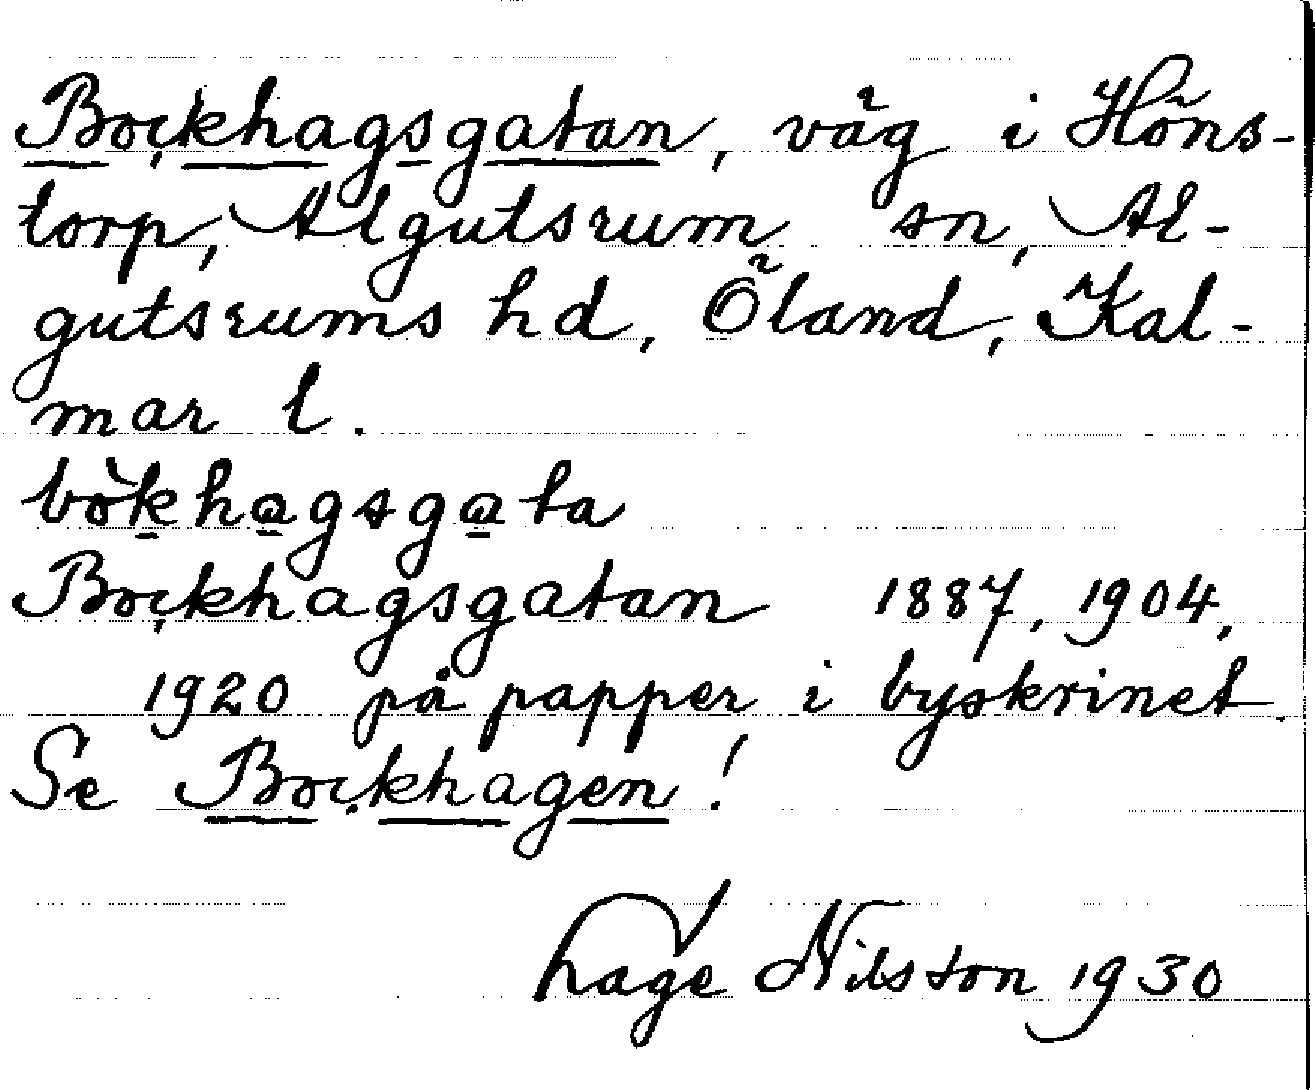 Bockhagsgatan, väg i Höns-
torp, Algutsrum sn, Al-
gutsrums hd, Öland, Kal-
mar l.
bòkhagsgata
Bockhagsgatan 1887, 1904,
1920 på papper i byskrinet.
Se Bockhagen!
Hage Nilsson 1930